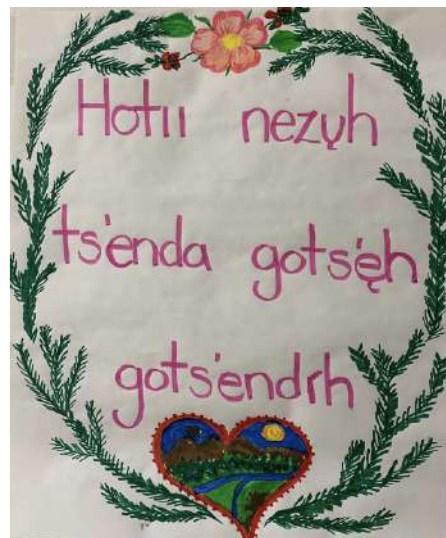 Hotıı nezų́h
ts'enda gots'ęh
gots'endıh